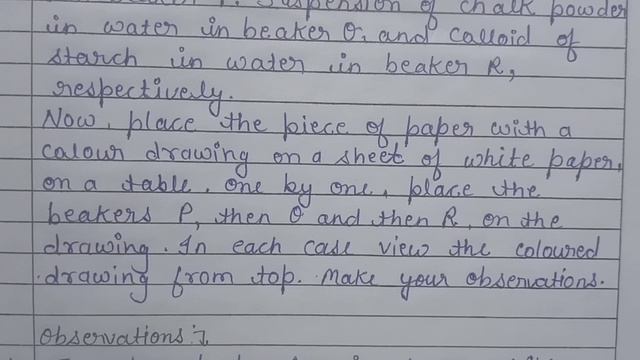 Suspension of chalk powder
in water in beaker Q, and calloid of
starch in water in beaker R,
respectively.
Now, place the piece of paper with a
calour drawing on a sheet of white paper,
on a table. One by one, place the
beakers P, then Q and then R, on the
drawing. In each case view the coloured
drawing from top. Make your observations.
Observations :-